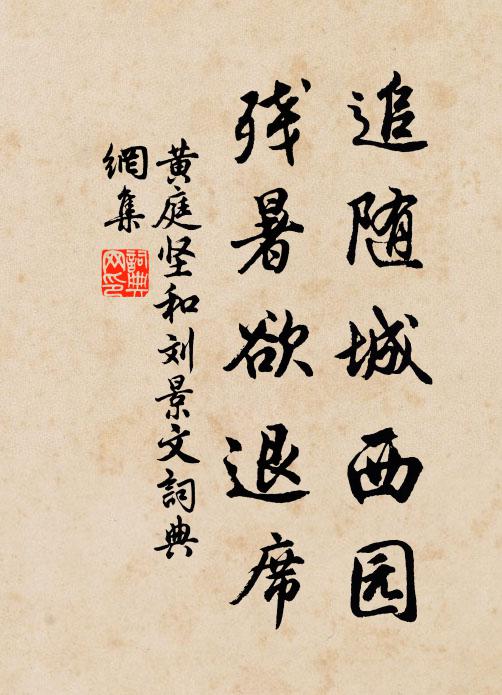 追随城西园
残暑欲退席
黄庭坚和刘景文詞典
網集
詞典
网印